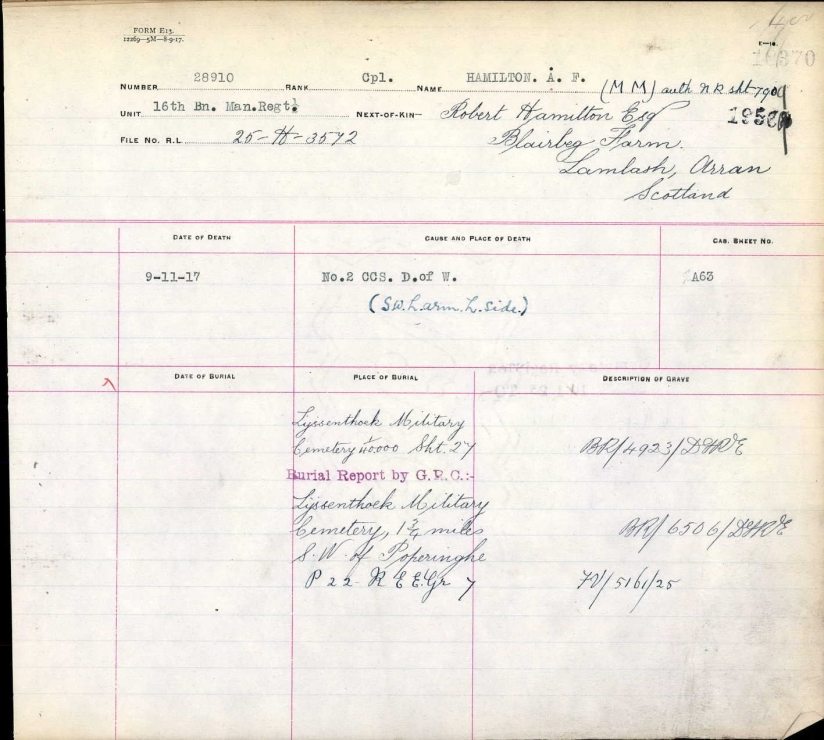 FORM E13.
12269—5M—8-9-17.
E—18.
16370
NUMBER 28910 RANK Cpl. NAME HAMILTON. A. F. (M M) auth N R sht 7909
UNIT 16th Bn. Man.Regt. NEXT-OF-KIN— Robert Hamilton Esq
1950
FILE NO. R.L. 25-H-3572 Blairbeg Farm.
Lamlash, Arran
Scotland
DATE OF DEATH CAUSE AND PLACE OF DEATH CAS. SHEET NO.
9-11-17 No.2 CCS. D.of W. A63
(S.W. L. arm. L. side.)
DATE OF BURIAL PLACE OF BURIAL DESCRIPTION OF GRAVE
Lijssenthoek Military
Cemetery 1/40.000 Sht. 27 BR/4923/DGR&E
Burial Report by G.R.C.:-
Lijssenthoek Military
Cemetery, 1 3/4 miles BR/6506/DGR&E
S. W. of Poperinghe
P 22 R E E. Gr 7 FV/5161/25